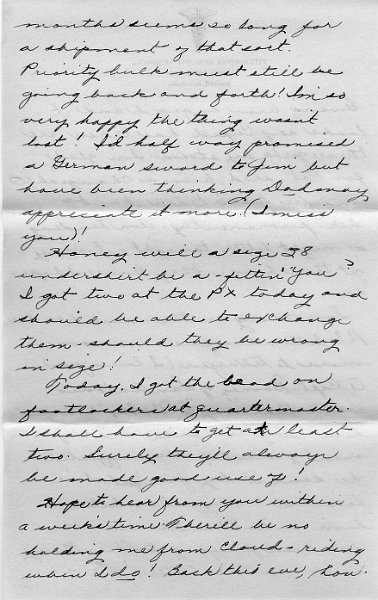 months seems so long for
a shipment of that sort.
Priority bulk must still be
going back and forth! I'm so
very happy the thing wasn't
lost! I'd half way promised
a German sword to Jim but
have been thinking Dad may
appreciate it more. (I miss
you)!
Honey will a size 38
undershirt be a-fittin' "you"?
I got two at the PX today and
should be able to exchange
them - should they be wrong
in size!
Today, I got the bead on
footlockers at quartermaster.
I shall have to get at least
two. Surely they'll always
be made good use of!
Hope to hear from you within
a weeks time. There'll be no
holding me from cloud-riding
when I do! Back this eve, hon.